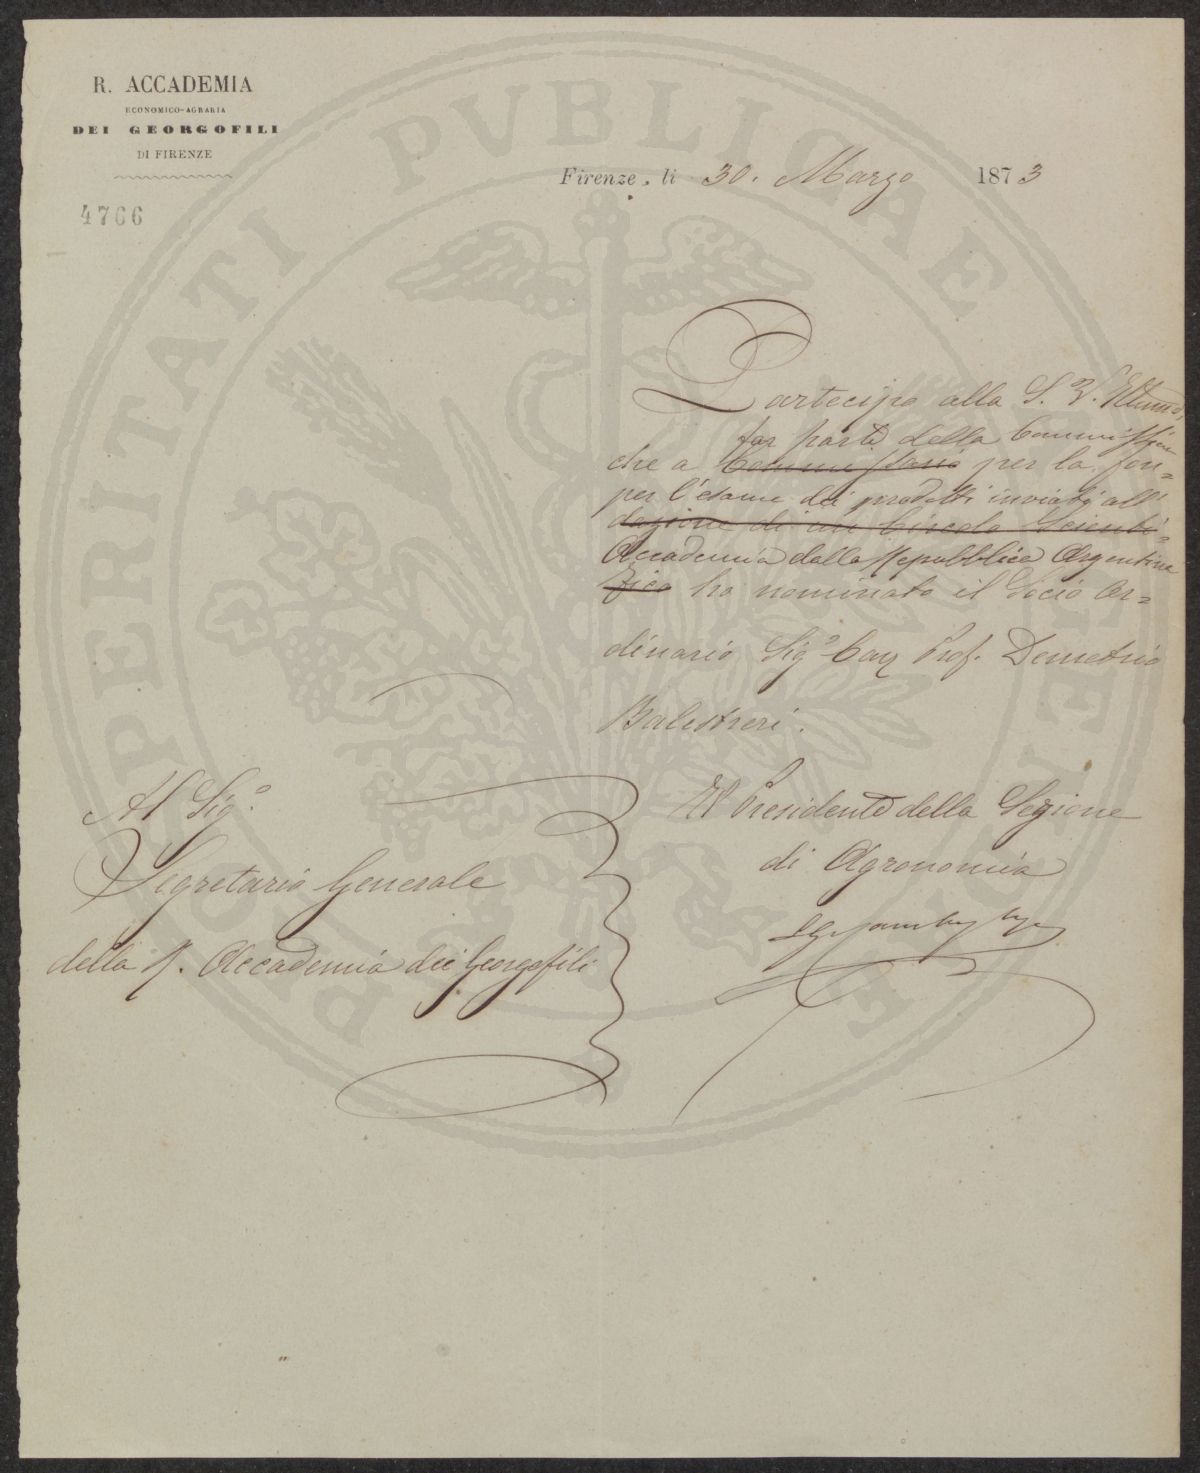 R. ACCADEMIA
ECONOMICO-AGRARIA
DEI GEORGOFILI
DI FIRENZE
4766
Firenze, li 30. Marzo 1873
PROSPERITATI PUBLICAE AUGENDAE
Partecipo alla S. V. Illuma,
far parte della Commissione
che a Commissario per la fon=
per l'esame dei prodotti inviati all'
dazione di un Circolo Scienti=
Accademia dalla Repubblica Argentina
fico ho nominato il Socio Or=
dinario Sigr Cav Prof. Demetrio
Balestreri.
Il Presidente della Sezione
di Agronomia
Al Sigr
Segretario Generale
della R. Accademia dei Georgofili